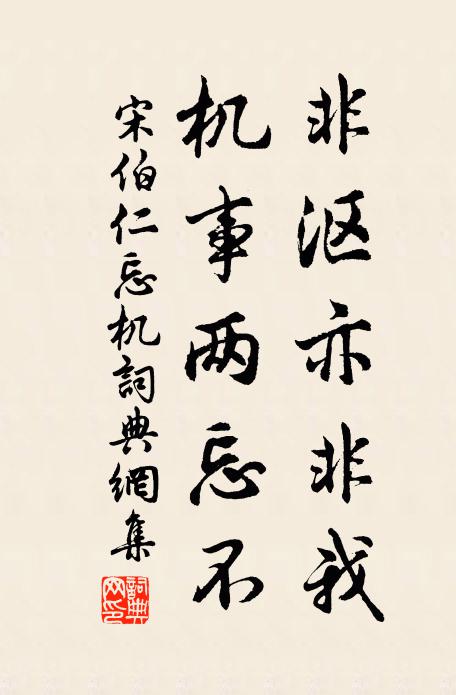 非沤亦非我
机事两忘不
宋伯仁忘机詞典網集
詞典网印